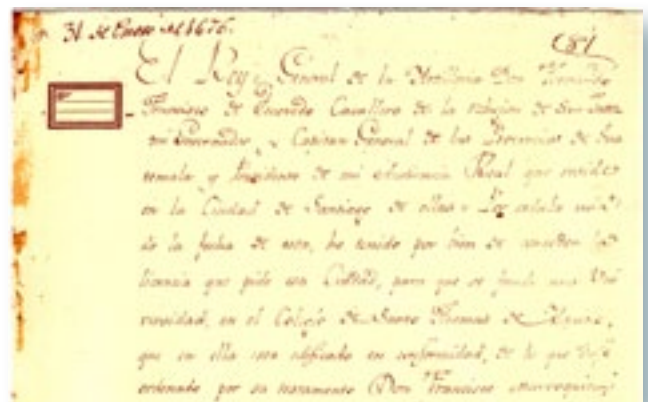 31 de Enero de 1676.
(81
El Rey = General de la Artilleria Don Fernando
Francisco de Escovedo Cavallero de la religion de San Juan
mi Governador, y Capitan General de las Provincias de Gua
temala y Presidente de mi Audiencia Real que reside
en la Ciudad de Santiago de ellas = Por cedula mia
de la fecha de esta, he tenido por bien de conceder la
licencia que pide esa Ciudad, para que se funde una Uni
versidad, en el Colegio de Santo Thomas de Aquino,
que en ella esta edificado en conformidad, de lo que dejó
ordenado por su testamento Don Francisco Marroquin